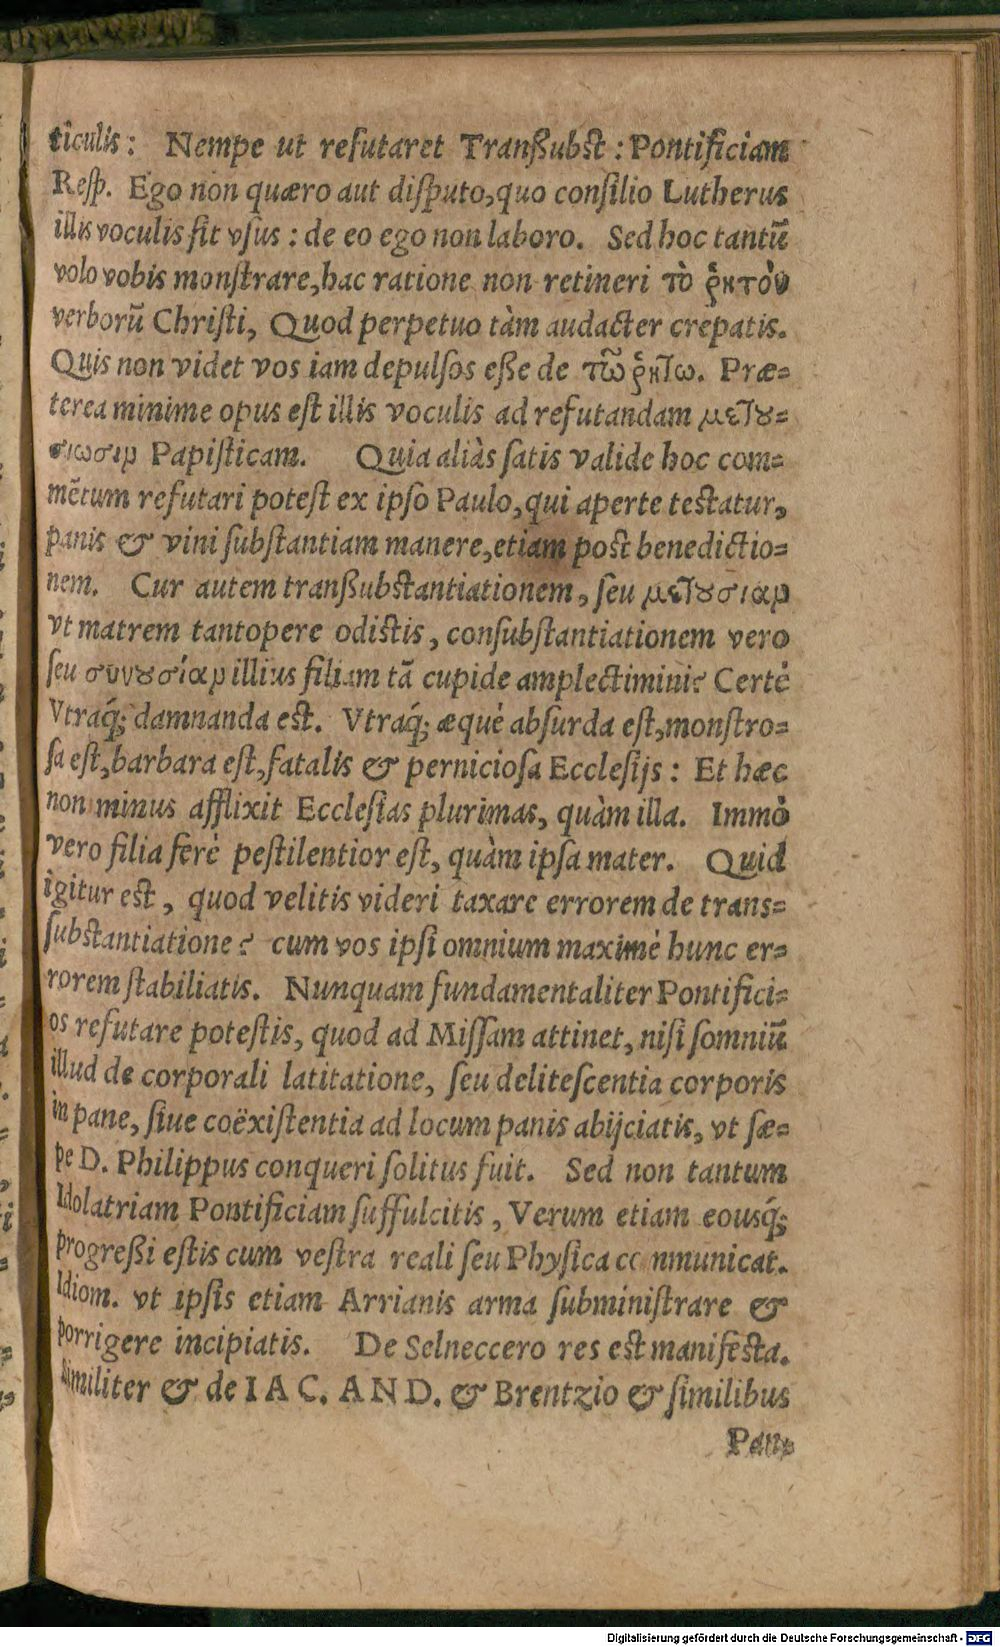 ticulis: Nempe ut refutaret Tranſſubst: Pontificiam
Reſp. Ego non quæro aut diſputo, quo conſilio Lutherus
illis voculis ſit vſus: de eo ego non laboro. Sed hoc tantũ
volo vobis monſtrare, hac ratione non retineri τὸ ῥητὸν
verborũ Chriſti, Quod perpetuo tàm audacter crepatis.
Quis non videt vos iam depulſos eſſe de τῶ ῥητῶ. Præ=
terea minime opus eſt illis voculis ad refutandam μετȣ=
σιωσιν Papiſticam. Quia aliàs ſatis valide hoc com=
mẽtum refutari poteſt ex ipſo Paulo, qui aperte testatur,
panis & vini ſubſtantiam manere, etiam post benedictio=
nem. Cur autem tranſſubstantiationem, ſeu μετȣσιαν
vt matrem tantopere odistis, conſubſtantiationem vero
ſeu συνȣσίαν illius filiam tã cupide amplectimini? Certè
Vtraq́; damnanda est. Vtraq́; æquè abſurda eſt, monſtro=
ſa eſt, barbara eſt, fatalis & pernicioſa Eccleſijs: Et hæc
non minus afflixit Eccleſias plurimas, quàm illa. Immò
vero filia ferè peſtilentior eſt, quàm ipſa mater. Quid
igitur est, quod velitis videri taxare errorem de trans=
ſubstantiatione? cum vos ipſi omnium maximè hunc er=
rorem ſtabiliatis. Nunquam fundamentaliter Pontifici=
os refutare poteſtis, quod ad Miſſam attinet, niſi ſomniũ
illud de corporali latitatione, ſeu deliteſcentia corporis
in pane, ſiue coëxiſtentia ad locum panis abijciatis, vt ſæ=
pe D. Philippus conqueri ſolitus fuit. Sed non tantum
Idolatriam Pontificiam ſuffulcitis, Verum etiam eousq́;
progreſſi eſtis cum veſtra reali ſeu Phyſica communicat.
Idiom. vt ipſis etiam Arrianis arma ſubminiſtrare &
porrigere incipiatis. De Selneccero res est manifesta.
Similiter & de IAC. AND. & Brentzio & ſimilibus
Digitalisierung gefördert durch die Deutsche Forschungsgemeinschaft - DFG